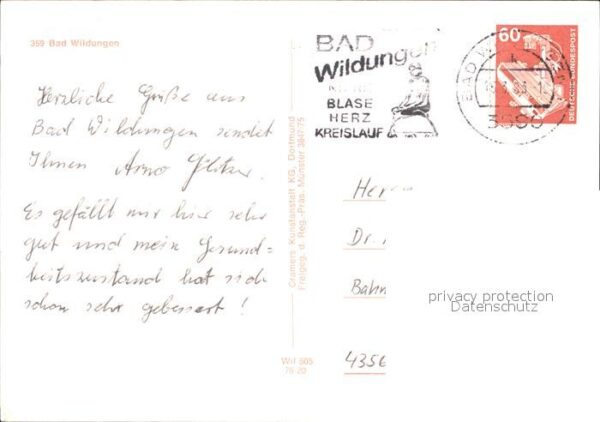 359 Bad Wildungen
Herzliche Grüße aus
Bad Wildungen sendet
Ihnen Arno
Es gefällt mir hier sehr
gut und mein Gesund=
heitszustand hat sich
schon sehr gebessert!
Cramers Kunstanstalt KG, Dortmund
Freigeg. d. Reg.-Präs. Münster 3847/75
Wil 505
76-20
BAD
Wildungen
BLASE
HERZ
KREISLAUF
BAD
60
DEUTSCHE BUNDESPOST
Herrn
Dr.
Bahn
4356
privacy protection
Datenschutz